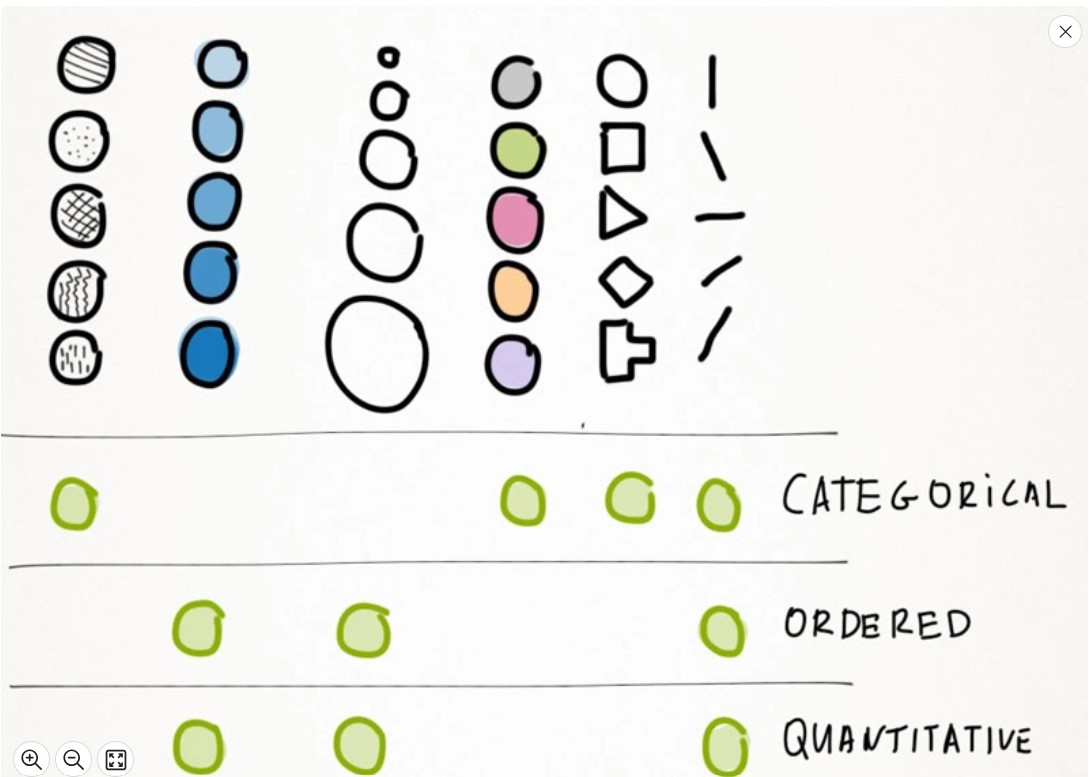 CATEGORICAL
ORDERED
QUANTITATIVE